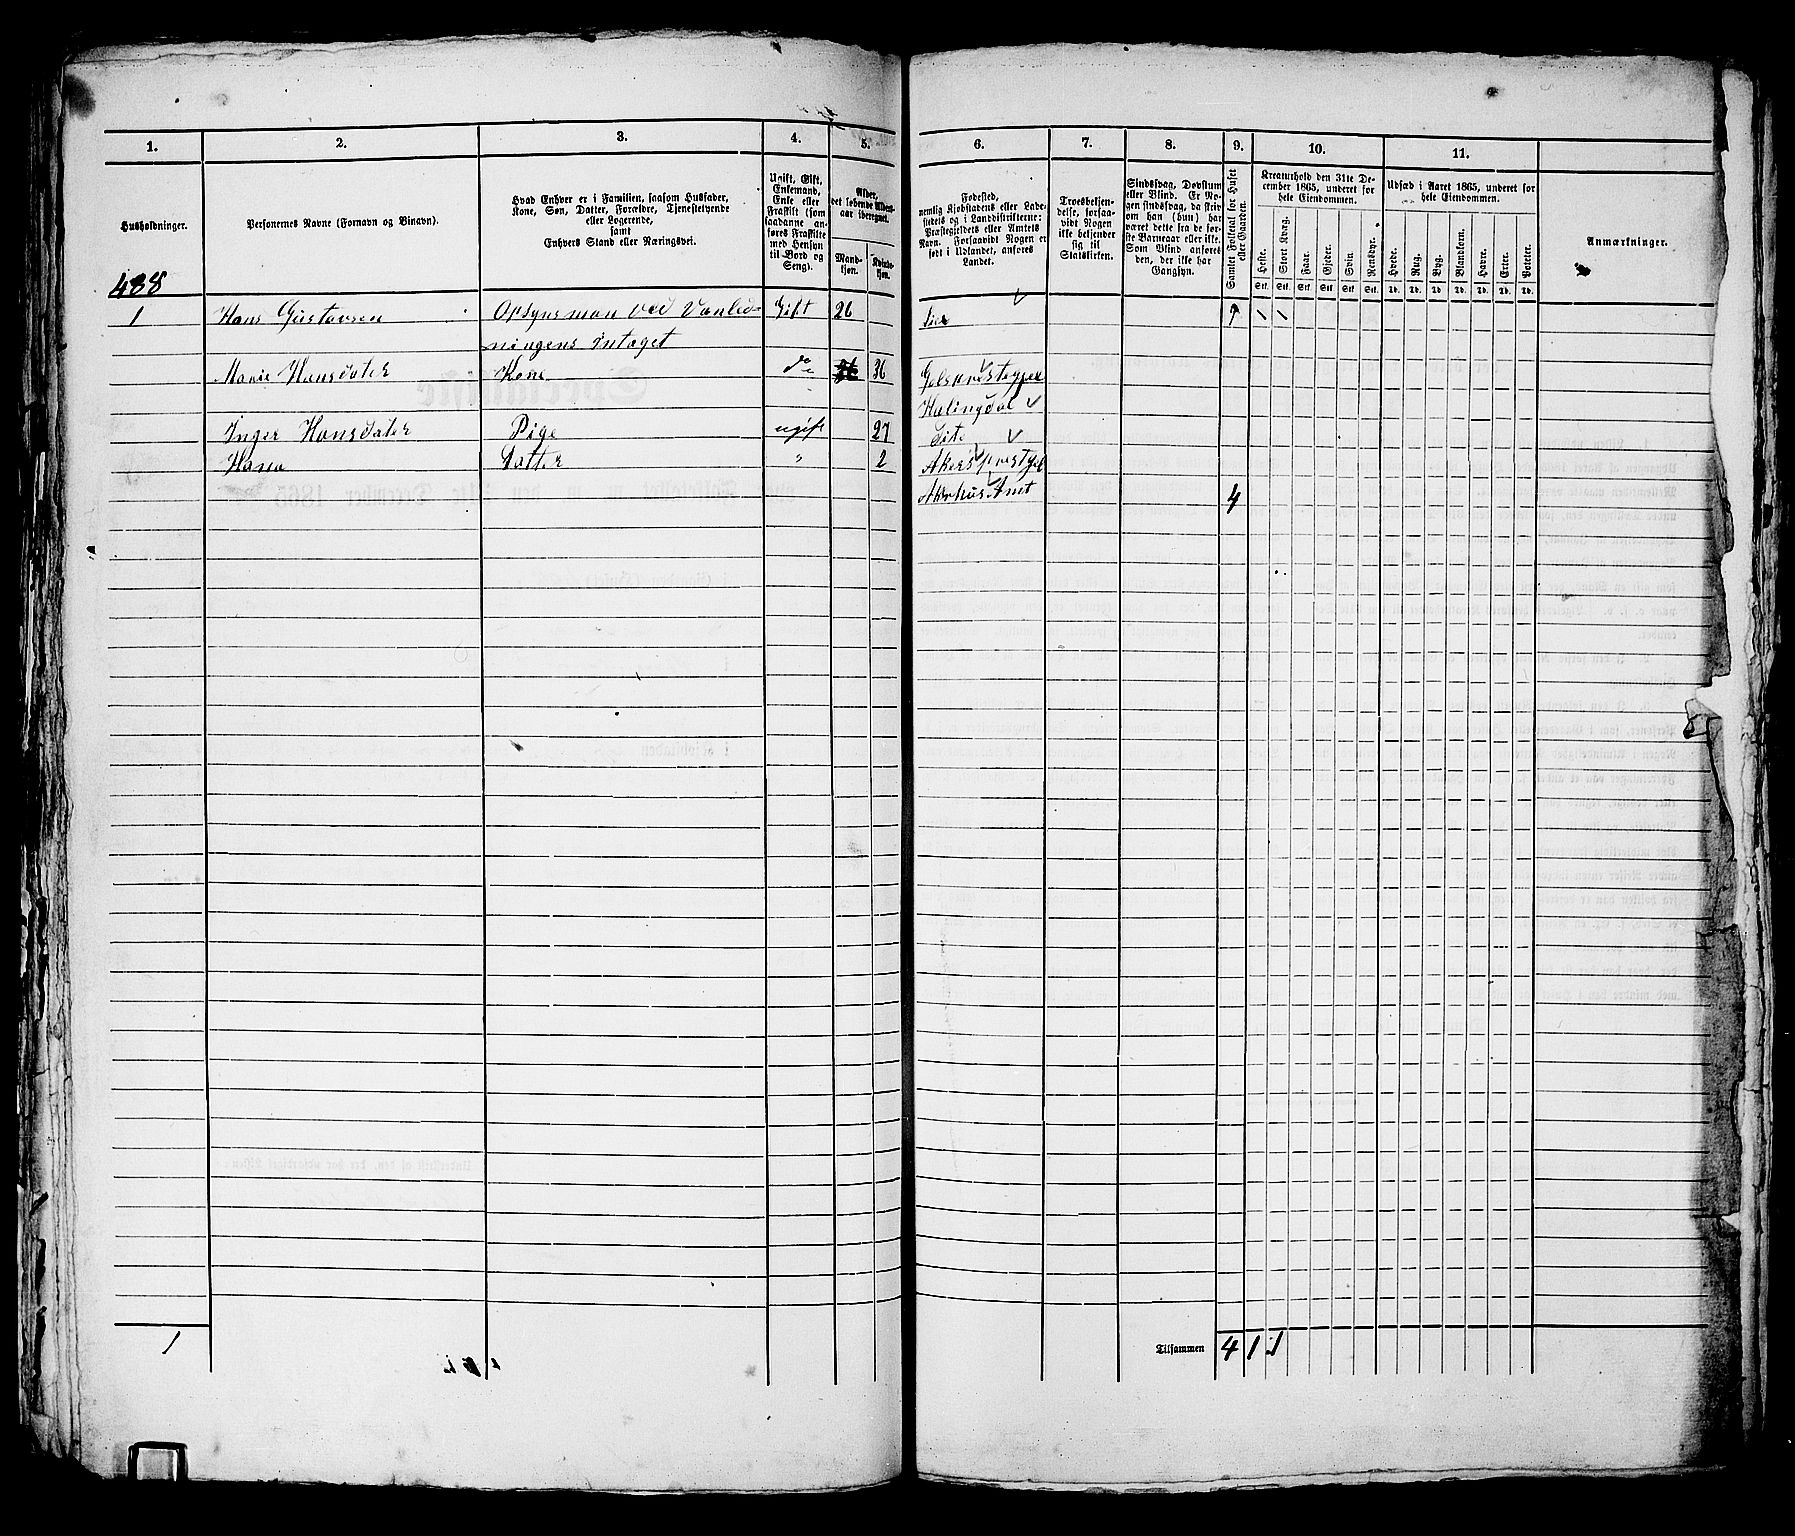 1.
2.
3.
4.
5.
6.
7.
8.
9.
10.
11.
Husholdninger.
Personernes Navne (Fornavn og Binavn).
Hvad Enhver er i Familien, saasom Husfader,
Kone, Søn, Datter, Forældre, Tjenestetyende
eller Logerende,
samt
Enhvers Stand eller Næringsvei.
Ugift, Gift,
Enkemand,
Enke eller
Fraskilt (som
saadanne an-
føres Fraskilte
med Hensyn
til Bord og
Seng).
Alder,
det løbende Alders-
aar iberegnet.
Mand-
kjøn.
Kvinde-
kjøn.
Fødested,
nemlig Kjøbstadens eller Lade-
stedets og i Landdistrikterne:
Præstegjeldets eller Amtets
Navn. Forsaavidt Nogen er
født i Udlandet, anføres
Landet.
Troesbekjen-
delse, forsaa-
vidt Nogen
ikke bekjender
sig til
Statskirken.
Sindssvag, Døvstum
eller Blind. Er No-
gen sindssvag, da skriv
om han (hun) har
været dette fra de før-
ste Barneaar eller ikke.
Som Blind anføres
den, der ikke har
Gangsyn.
Samlet Folketal for Huset
eller Gaarden.
Kreaturhold den 31te De-
cember 1865, underet for
hele Eiendommen.
Heste. Stort Kvæg. Faar. Gjeder. Svin. Rensdyr.
Stk. Stk. Stk. Stk. Stk. Stk.
Udsæd i Aaret 1865, underet for
hele Eiendommen.
Hvede. Rug. Byg. Blandkorn. Havre. Erter. Poteter.
Td. Td. Td. Td. Td. Td. Td.
Anmærkninger.
488
1 Hans Gustavsen Opsynsman ved Vanled- Gift 26 Lier
ningens Intaget
Marie Hansdater Kone do 36 Gols prestegjel
Halingdal
Inger Hansdater Pige ugift 27 dito
Hana Datter " 2 Akers prestgjel
Akerhus Amt 4
1
Tilsammen 4 1 1